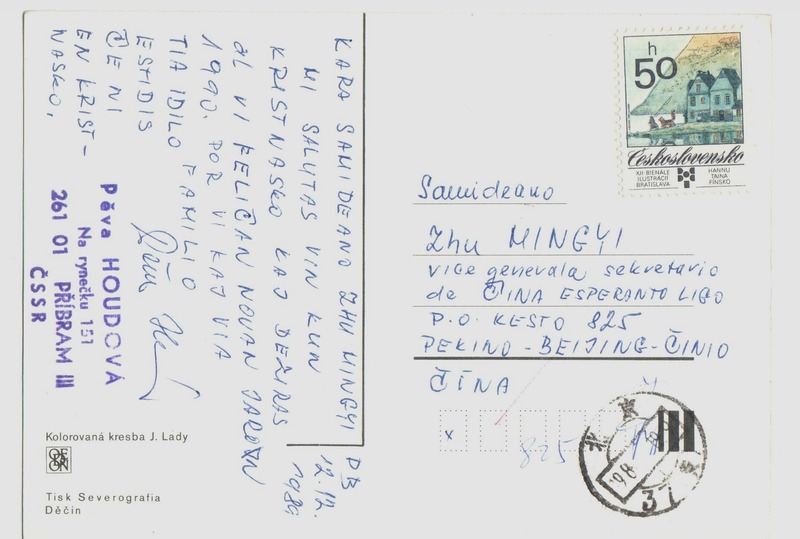 PB
12.12.
1989
KARA SAMIDEANO ZHU MINGYI
MI SALUTAS VIN KUN
KRISTNASKO KAJ DEZIRAS
AL VI FELIČAN NOVAN
1990. POR VI KAJ VIA
TIA IDILO FAMILIO
ESTIDIS
ČE NI
EN KRIST-
NASKO,
Pěva HOUDOVÁ
Na rynečku 151
261 01 PŘÍBRAM III
ČSSR
Kolorovaná kresba J. Lady
Tisk Severografia
Děčín
h
50
Československo
XII BIENÁLE
ILUSTRÁCIÍ
BRATISLAVA
HANNU
TAINA
FÍNSKO
Samideano
Zhu MINGYI
vice generala sekretario
de ČINA ESPERANTO LIGO
P.O. KESTO 825
PEKINO-BEIJING-ČINIO
ČÍNA
x
825
北京
37